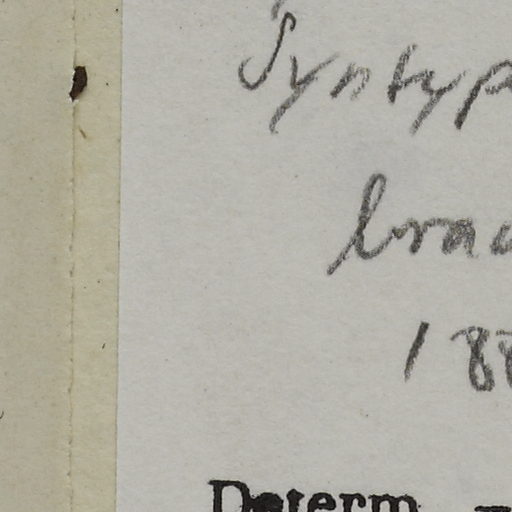 Syntyp
brac
188
Determ. -